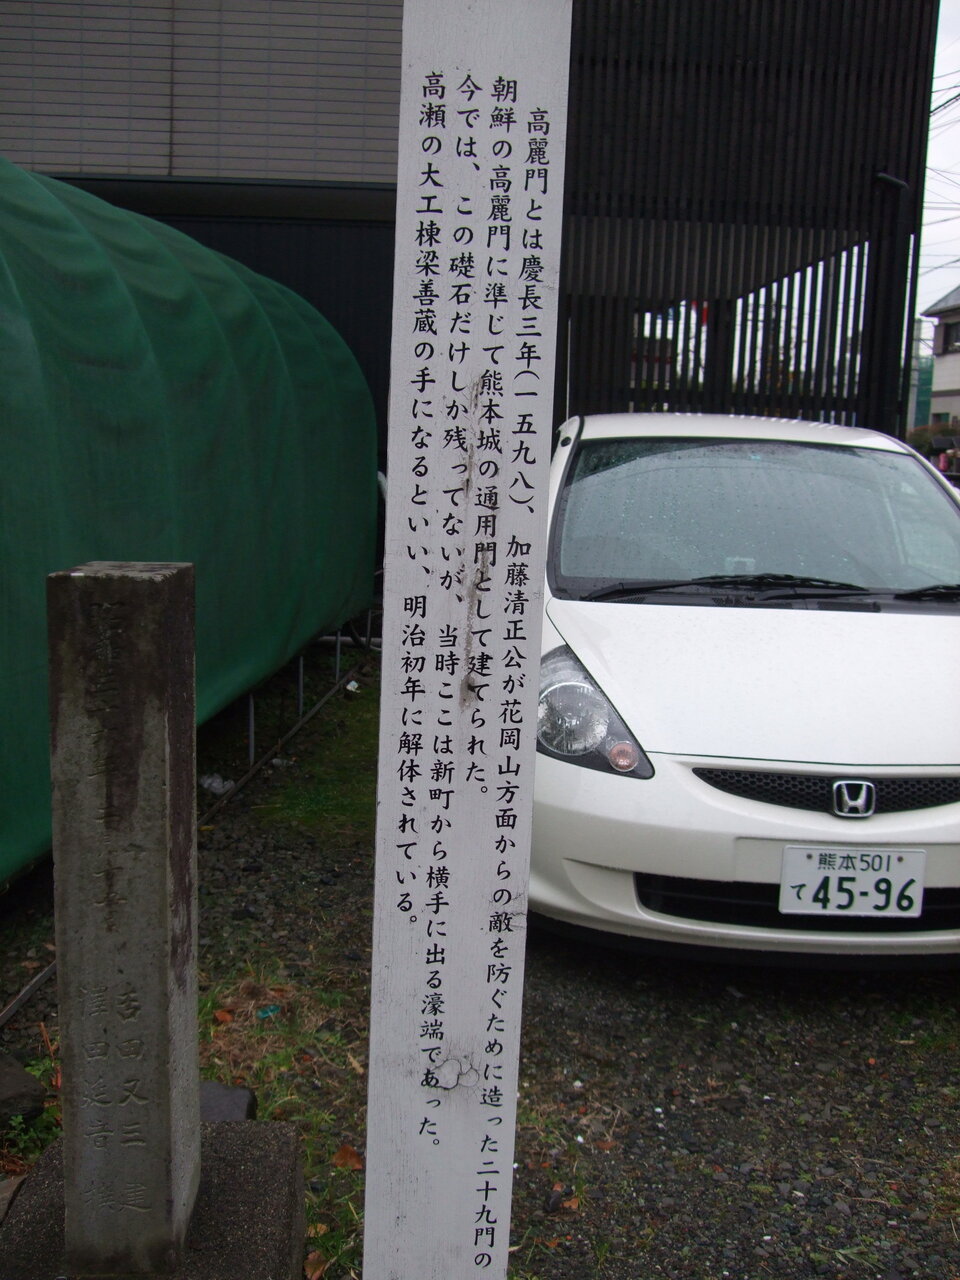 高麗門とは慶長三年(一五九八)、加藤清正公が花岡山方面からの敵を防ぐために造った二十九門の
朝鮮の高麗門に準じて熊本城の通用門として建てられた。
今では、この礎石だけしか残ってないが、当時ここは新町から横手に出る濠端であった。
高瀬の大工棟梁善蔵の手になるといい、明治初年に解体されている。
熊本501
て 45-96
吉田又三 建